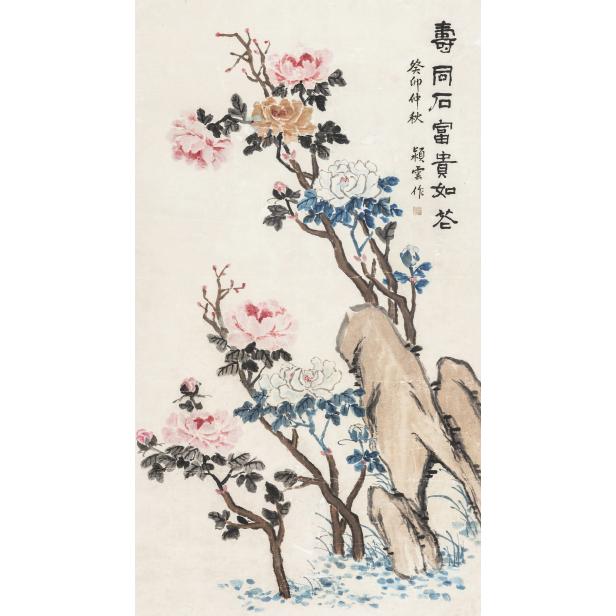 壽同石富貴如花
癸卯仲秋
穎雲作